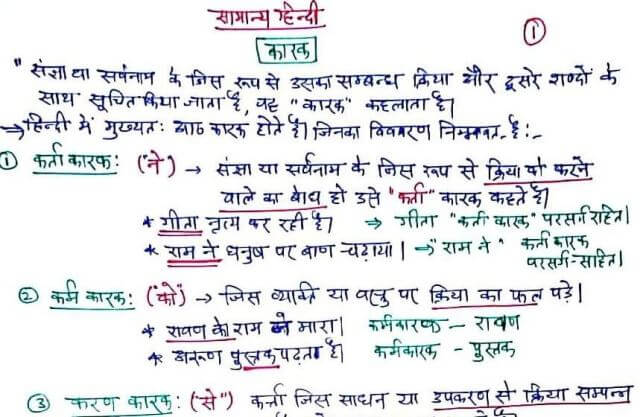 सामान्य हिन्दी
①
कारक
"संज्ञा या सर्वनाम के जिस रूप से उसका सम्बन्ध क्रिया और दूसरे शब्दों के
साथ सूचित किया जाता है, वह "कारक" कहलाता है।
→ हिन्दी में मुख्यतः आठ कारक होते है। जिनका विवरण निम्नवत् है:-
① कर्ता कारक: (ने) → संज्ञा या सर्वनाम के जिस रूप से क्रिया को करने
वाले का बोध हो उसे "कर्ता" कारक कहते है।
* गीता नृत्य कर रही है। ⇒ गीता "कर्ता कारक" परसर्ग रहित।
* राम ने धनुष पर बाण चढ़ाया। → "राम ने" कर्ता कारक
परसर्ग-सहित।
② कर्म कारक: ("को") → जिस व्यक्ति या वस्तु पर क्रिया का फल पड़े।
* रावण को राम ने मारा। कर्मकारक – रावण
* अरूण पुस्तक पढ़ता है। कर्मकारक - पुस्तक
③ करण कारक: ("से") कर्ता जिस साधन या उपकरण से क्रिया सम्पन्न